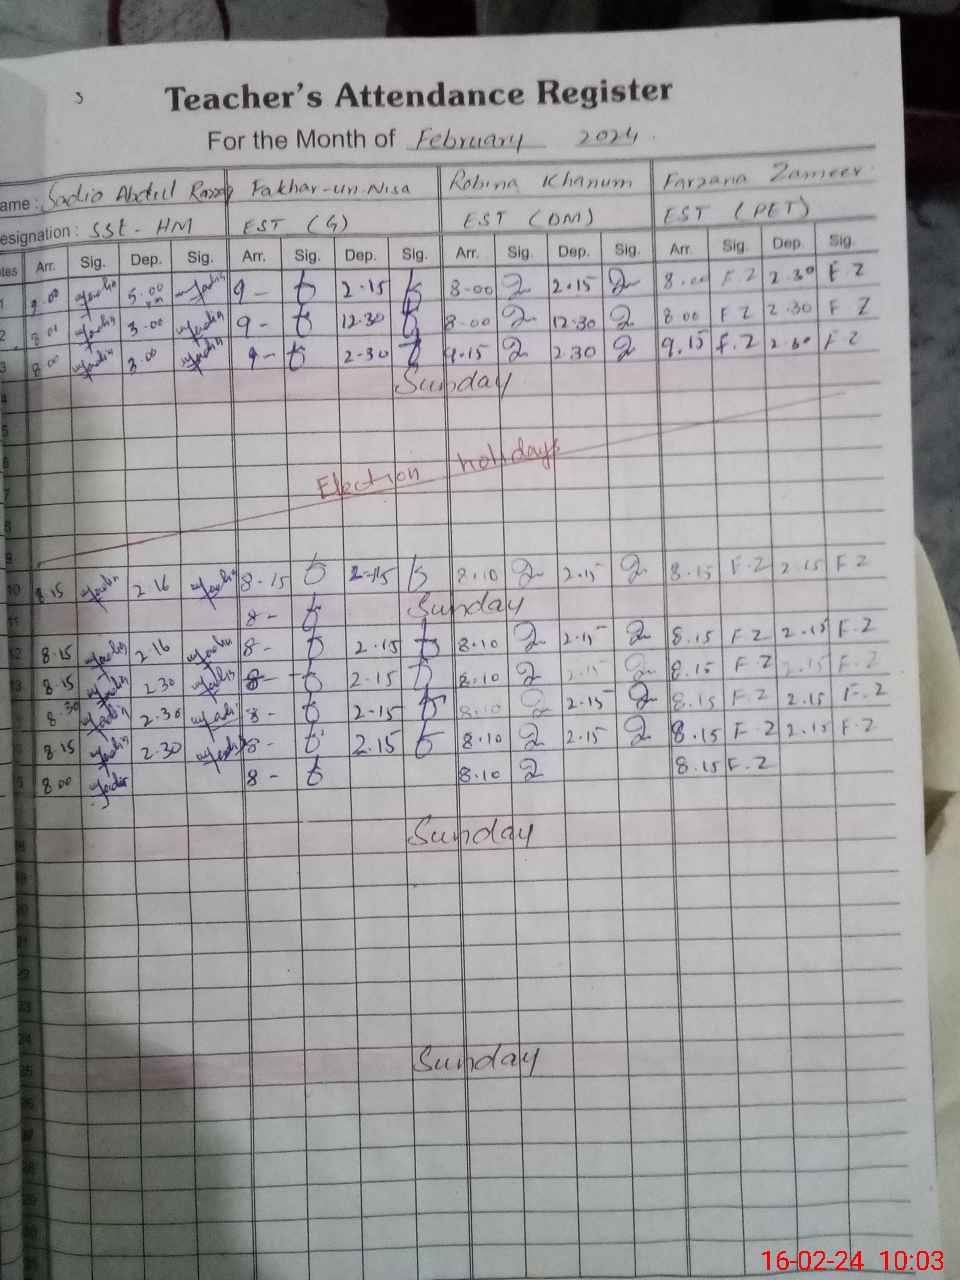 Teacher's Attendance Register
For the Month of February 2024.
ame: Sadio Abdul Fakhar-un-Nisa Robina Khanum Farzana Zameer
esignation: SSt - HM EST (G) EST (DM) EST (PET)
tes Arr. Sig. Dep. Sig. Arr. Sig. Dep. Sig. Arr. Sig. Dep. Sig. Arr. Sig. Dep. Sig.
1 9.00 5.00 9- 2.15 8-00 2.15 8.00 F.Z 2.30 F.Z
2 8.01 3.00 9- 12.30 8.00 12.30 8.00 F Z 2.30 F Z
3 8.00 3.00 9- 2-30 9.15 2.30 9.15 F.Z F Z
4 Sunday
5
6 Election holidays
7
8
9
10 8.15 2 16 8-15 2-15 8.10 2.15 8.15 F.Z 2.15 F Z
11 8- Sunday
12 8.15 2.16 8- 2.15 8.10 2.15 8.15 F Z 2.15 F.Z
13 8.15 2.30 8- 2.15 8.10 2.15 8.15 F.Z 2.15 F.Z
8.30 2.30 8- 2-15 8.10 2.15 8.15 F.Z 2.15 F.Z
8.15 2.30 8- 2.15 8.10 2.15 8.15 F.Z 2.15 F.Z
8.00 8- 8.10 8.15 F.Z
Sunday
Sunday
16-02-24 10:03